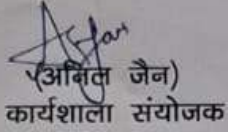 (अनिल जैन)
कार्यशाला संयोजक